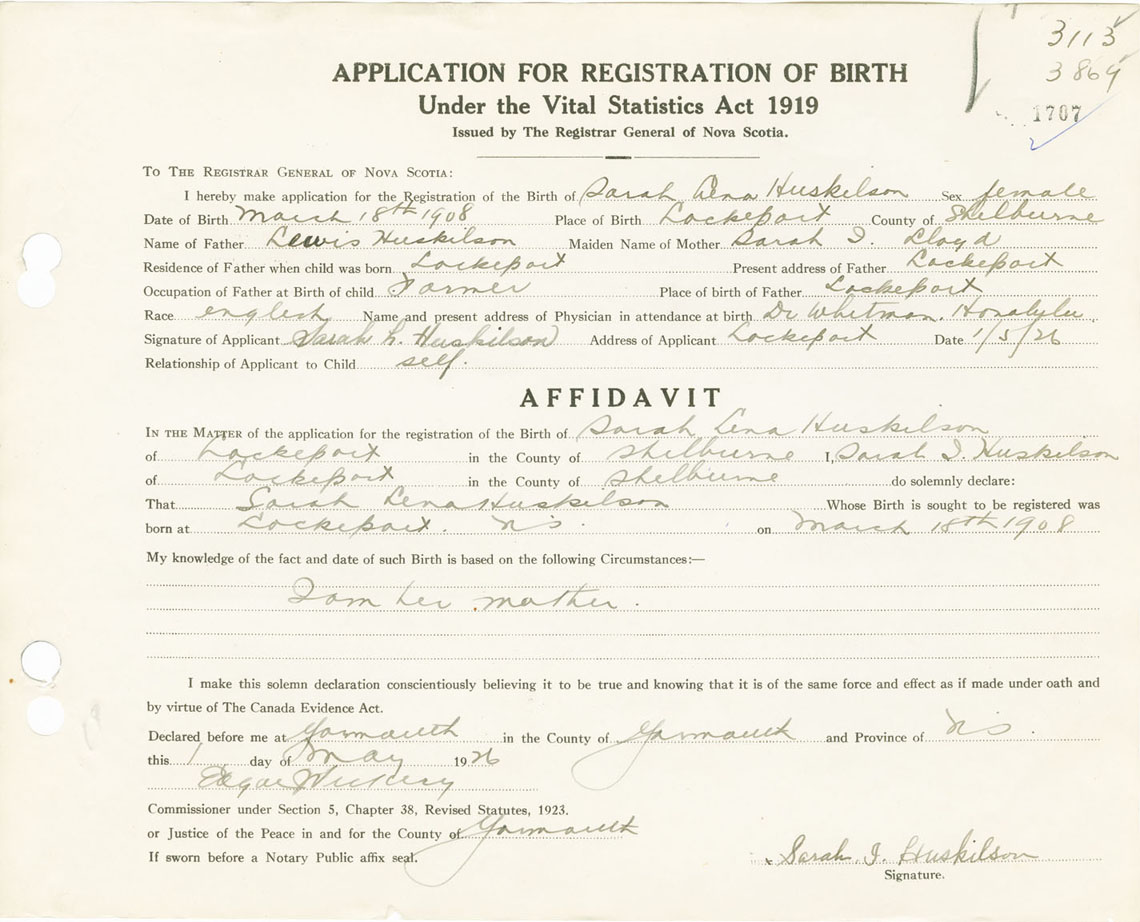 3113
3869
1707
APPLICATION FOR REGISTRATION OF BIRTH
Under the Vital Statistics Act 1919
Issued by The Registrar General of Nova Scotia.
To The Registrar General of Nova Scotia:
I hereby make application for the Registration of the Birth of Sarah Lena Huskilson Sex female
Date of Birth March 18th 1908 Place of Birth Lockeport County of Shelburne
Name of Father Lewis Huskilson Maiden Name of Mother Sarah I. Lloyd
Residence of Father when child was born Lockeport Present address of Father Lockeport
Occupation of Father at Birth of child Farmer Place of birth of Father Lockeport
Race english Name and present address of Physician in attendance at birth Dr Whitman. Honolylu
Signature of Applicant Sarah L. Huskilson Address of Applicant Lockeport Date 1/5/26
Relationship of Applicant to Child self.
AFFIDAVIT
In the Matter of the application for the registration of the Birth of Sarah Lena Huskilson
of Lockeport in the County of Shelburne I, Sarah I. Huskilson
of Lockeport in the County of Shelburne do solemnly declare:
That Sarah Lena Huskilson Whose Birth is sought to be registered was
born at Lockeport. NS. on March 18th 1908
My knowledge of the fact and date of such Birth is based on the following Circumstances:—
I am her mother.
I make this solemn declaration conscientiously believing it to be true and knowing that it is of the same force and effect as if made under oath and
by virtue of The Canada Evidence Act.
Declared before me at Yarmouth in the County of Yarmouth and Province of NS.
this 1 day of May 1926
Edgar
Commissioner under Section 5, Chapter 38, Revised Statutes, 1923.
or Justice of the Peace in and for the County of Yarmouth
If sworn before a Notary Public affix seal.
x Sarah I. Huskilson
Signature.